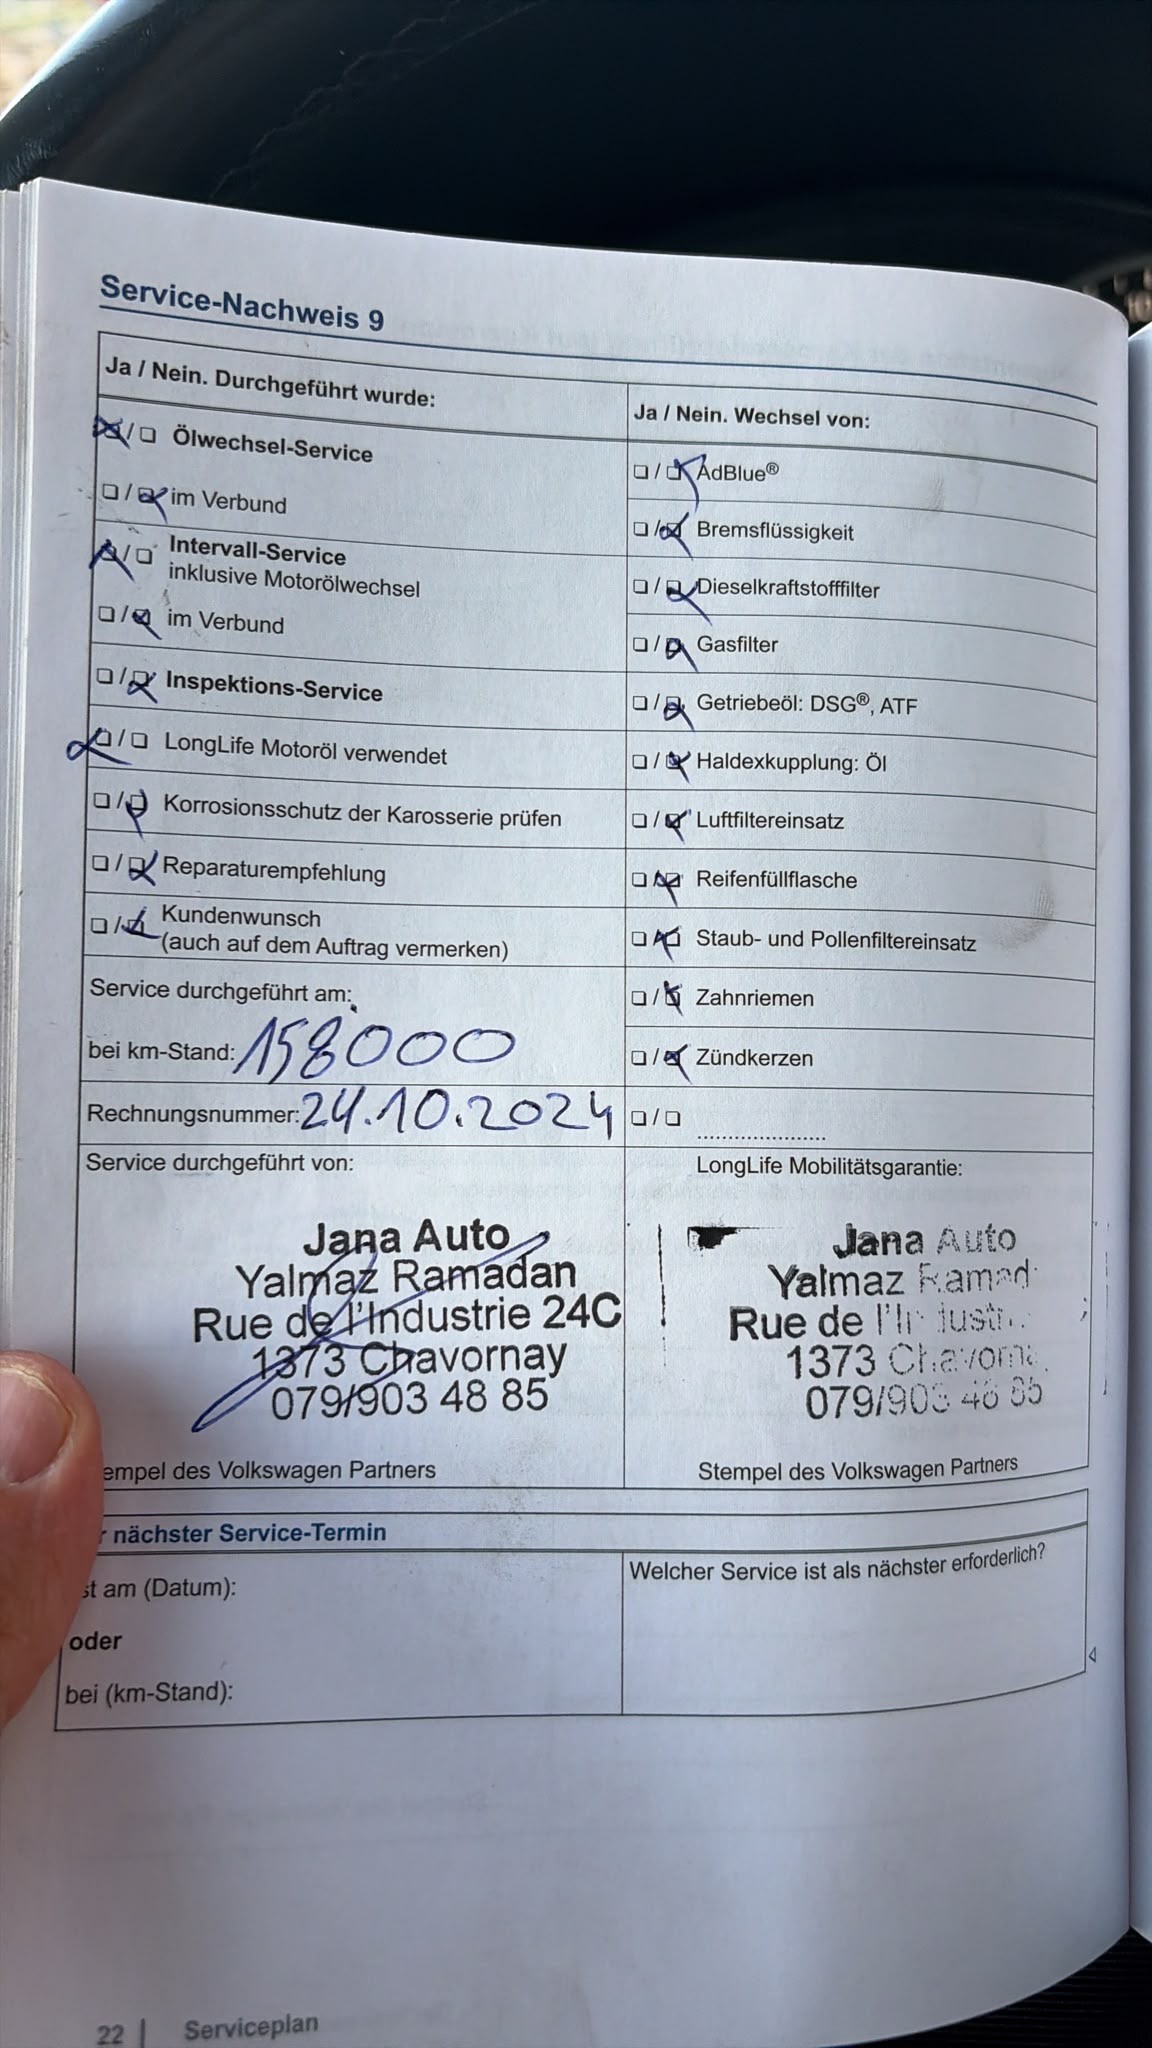 Service-Nachweis 9
Ja / Nein. Durchgeführt wurde:
☒/☐ Ölwechsel-Service
☐/☒ im Verbund
☒/☐ Intervall-Service
inklusive Motorölwechsel
☐/☒ im Verbund
☐/☒ Inspektions-Service
☒/☐ LongLife Motoröl verwendet
☐/☒ Korrosionsschutz der Karosserie prüfen
☐/☒ Reparaturempfehlung
☐/☒ Kundenwunsch
(auch auf dem Auftrag vermerken)
Service durchgeführt am:
bei km-Stand: 158000
Rechnungsnummer: 24.10.2024
Ja / Nein. Wechsel von:
☐/☒ AdBlue®
☐/☒ Bremsflüssigkeit
☐/☒ Dieselkraftstofffilter
☐/☒ Gasfilter
☐/☒ Getriebeöl: DSG®, ATF
☐/☒ Haldexkupplung: Öl
☐/☒ Luftfiltereinsatz
☐/☒ Reifenfüllflasche
☐/☒ Staub- und Pollenfiltereinsatz
☐/☒ Zahnriemen
☐/☒ Zündkerzen
☐/☐ .....................
Service durchgeführt von:
Jana Auto
Yalmaz Ramadan
Rue de l'Industrie 24C
1373 Chavornay
079/903 48 85
empel des Volkswagen Partners
LongLife Mobilitätsgarantie:
Jana Auto
Yalmaz Ramad
Rue de l'Industri
1373 Chavorna
079/903 48 85
Stempel des Volkswagen Partners
r nächster Service-Termin
st am (Datum):
oder
bei (km-Stand):
Welcher Service ist als nächster erforderlich?
22 | Serviceplan